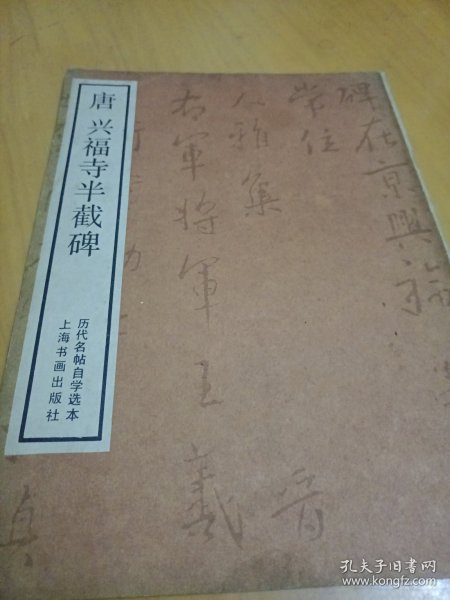 唐 兴福寺半截碑
历代名帖自学选本
上海书画出版社
碑在京興福
常住
八雅集
右軍將軍王羲
晋
真
孔夫子旧书网
www.kongfz.com